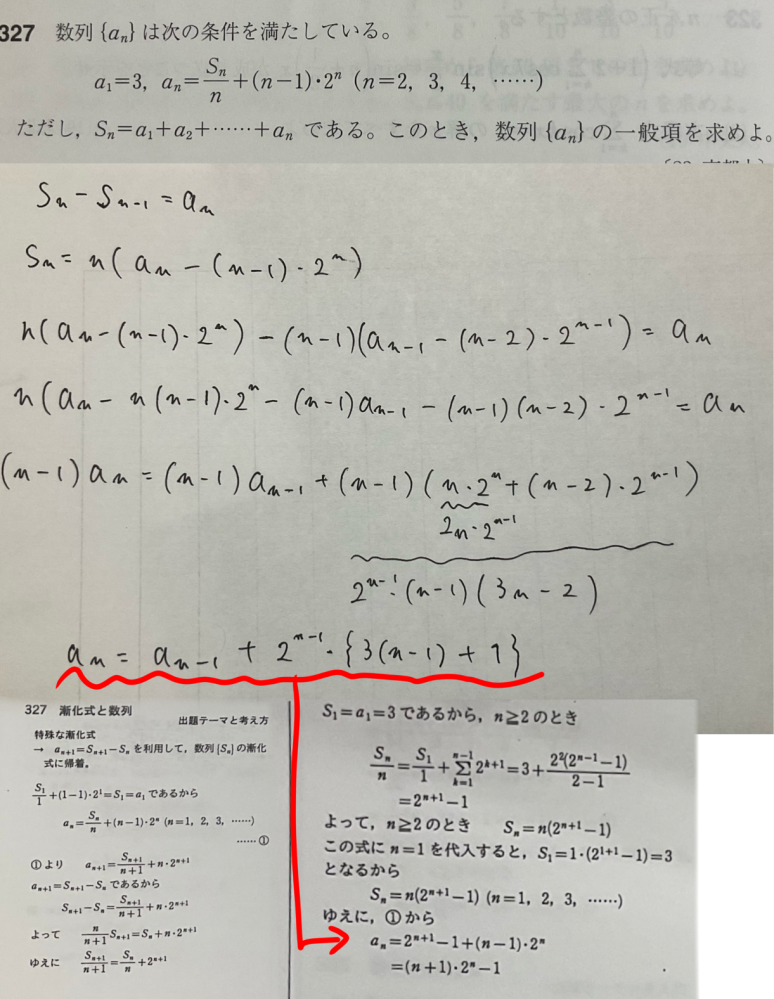 327 数列{aₙ}は次の条件を満たしている。
a₁=3, aₙ=Sₙ/n+(n−1)・2ⁿ (n=2, 3, 4, ……)
ただし, Sₙ=a₁+a₂+……+aₙ である。このとき, 数列{aₙ}の一般項を求めよ。
Sₙ − Sₙ₋₁ = aₙ
Sₙ = n(aₙ − (n−1)・2ⁿ)
n(aₙ−(n−1)・2ⁿ) − (n−1)(aₙ₋₁ − (n−2)・2ⁿ⁻¹) = aₙ
n(aₙ − n(n−1)・2ⁿ − (n−1)aₙ₋₁ − (n−1)(n−2)・2ⁿ⁻¹ = aₙ
(n−1)aₙ = (n−1)aₙ₋₁ + (n−1)(n・2ⁿ+(n−2)・2ⁿ⁻¹)
2n・2ⁿ⁻¹
2ⁿ⁻¹・(n−1)(3n−2)
aₙ = aₙ₋₁ + 2ⁿ⁻¹・{3(n−1)+1}
327 漸化式と数列
出題テーマと考え方
特殊な漸化式
→ aₙ₊₁=Sₙ₊₁−Sₙ を利用して, 数列{Sₙ}の漸化
式に帰着。
S₁/1+(1−1)・2¹=S₁=a₁ であるから
aₙ=Sₙ/n+(n−1)・2ⁿ (n=1, 2, 3, ……)
…… ①
①より aₙ₊₁=Sₙ₊₁/(n+1)+n・2ⁿ⁺¹
aₙ₊₁=Sₙ₊₁−Sₙ であるから
Sₙ₊₁−Sₙ=Sₙ₊₁/(n+1)+n・2ⁿ⁺¹
よって n/(n+1)Sₙ₊₁=Sₙ+n・2ⁿ⁺¹
ゆえに Sₙ₊₁/(n+1)=Sₙ/n+2ⁿ⁺¹
S₁=a₁=3 であるから, n≧2 のとき
Sₙ/n=S₁/1+∑[k=1, n−1]2ᵏ⁺¹=3+2²(2ⁿ⁻¹−1)/(2−1)
=2ⁿ⁺¹−1
よって, n≧2 のとき Sₙ=n(2ⁿ⁺¹−1)
この式に n=1 を代入すると, S₁=1・(2¹⁺¹−1)=3
となるから
Sₙ=n(2ⁿ⁺¹−1) (n=1, 2, 3, ……)
ゆえに, ①から
aₙ=2ⁿ⁺¹−1+(n−1)・2ⁿ
=(n+1)・2ⁿ−1